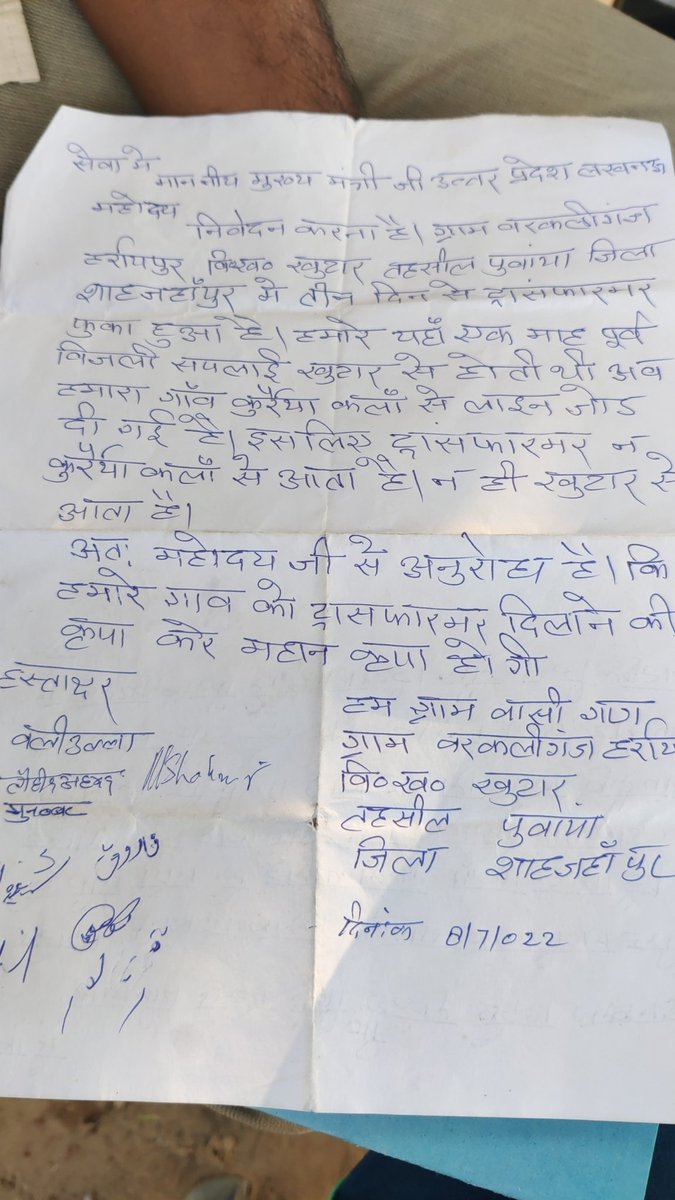 सेवा मे
माननीय मुख्य मंत्री जी उत्तर प्रदेश लखनऊ
महोदय
निवेदन करना है। ग्राम वरकलीगंज
हरीपुर वि०ख० खुटार तहसील पुवांया जिला
शाहजहाँपुर मे तीन दिन से ट्रासंफारमर
फुका हुआ है। हमारे यहाँ एक माह पूर्व
विजली सपलाई खुटार से होती थी अव
हमारा गाँव कुरैया कलाँ से लाइन जोड
दी गई है। इसलिए ट्रांसफारमर न
कुरैया कलाँ से आता है। न ही खुटार से
आता है।
अतः महोदय जी से अनुरोध है। कि
हमारे गाव को ट्रासफारमर दिलाने की
कृपा करे महान कृपा होगी
हस्ताक्षर
हम ग्राम वासी गण
वलीउल्ला
ग्राम वरकलीगंज
वि०ख० खुटार
तहसील पुवायां
जिला शाहजहाँपुर
दिनांक 8/7/022